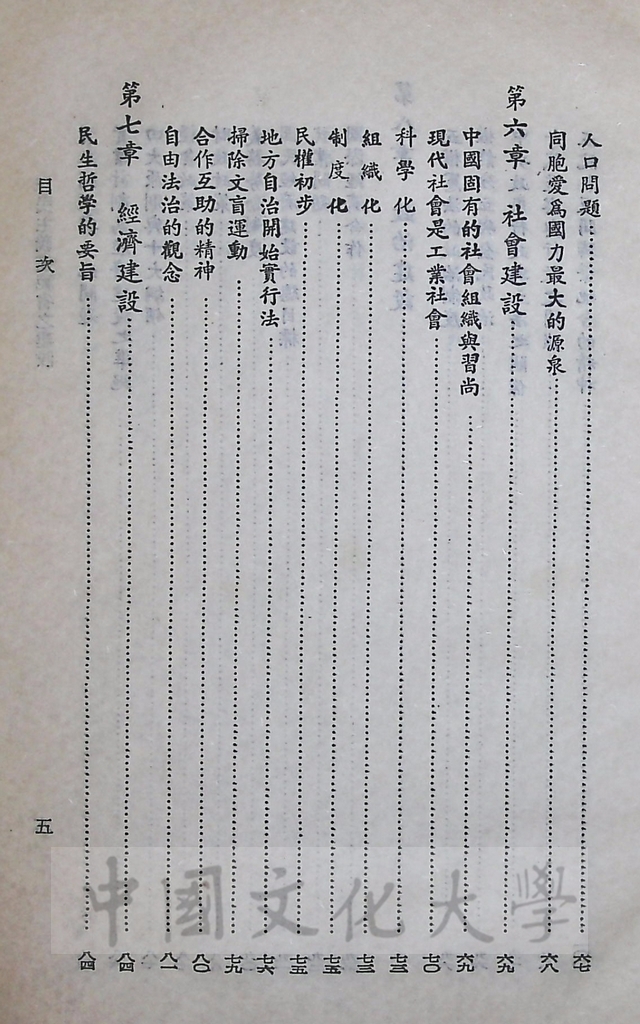 人口問題……六七
同胞愛爲國力最大的源泉……六八
第六章　社會建設……六九
中國固有的社會組織與習尚……六九
現代社會是工業社會……七〇
科學化……七三
組織化……七三
制度化……七五
民權初步……七五
地方自治開始實行法……七六
掃除文盲運動……七九
合作互助的精神……八〇
自由法治的觀念……八一
第七章　經濟建設……八四
民生哲學的要旨……八四
目次
五
中國文化大學